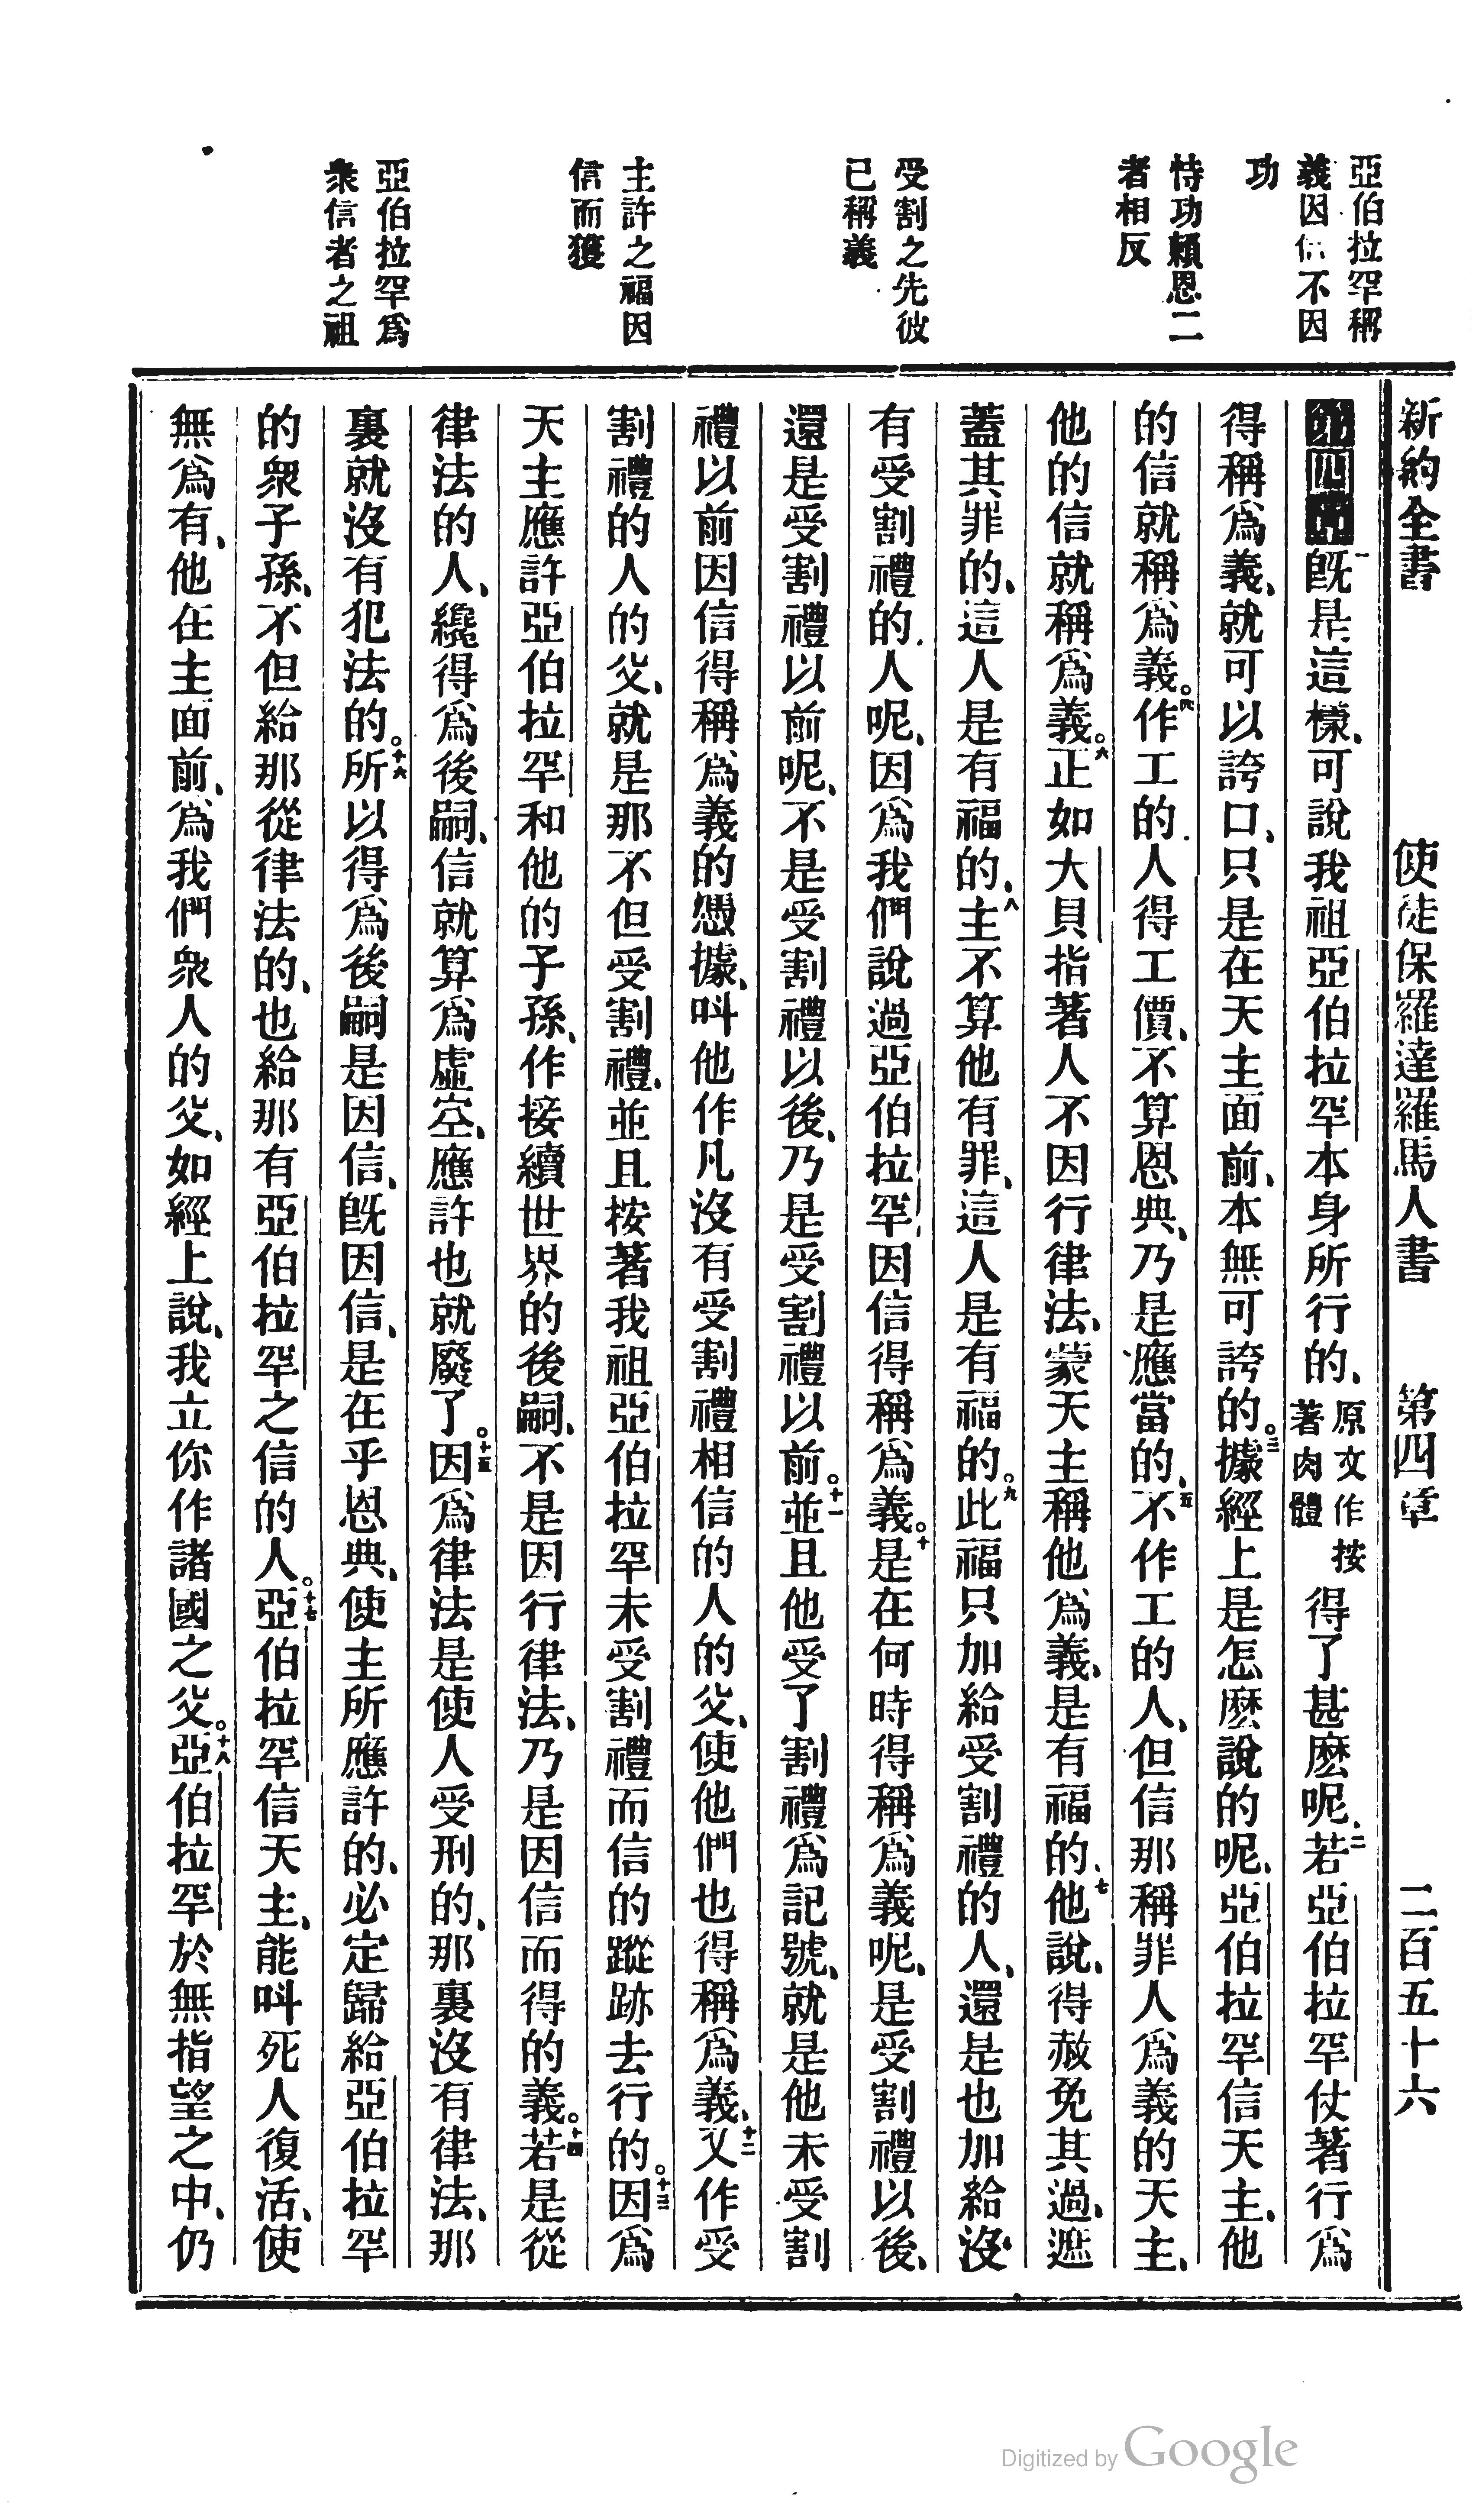 新約全書 使徒保羅達羅馬人書 第四章 二百五十六
亞伯拉罕稱
義因信不因
功
恃功賴恩二
者相反
受割之先彼
已稱義
主許之福因
信而獲
亞伯拉罕爲
衆信者之祖
第四章一旣是這樣、可說我祖亞伯拉罕本身所行的、原文作按著肉體得了甚麽呢、二若亞伯拉罕仗著行爲
得稱爲義、就可以誇口、只是在天主面前、本無可誇的。三據經上是怎麽說的呢、亞伯拉罕信天主、他
的信就稱爲義。四作工的人得工價、不算恩典、乃是應當的、五不作工的人、但信那稱罪人爲義的天主、
他的信就稱爲義。六正如大貝指著人不因行律法、蒙天主稱他爲義、是有福的、七他說、得赦免其過、遮
蓋其罪的、這人是有福的、八主不算他有罪、這人是有福的。九此福只加給受割禮的人、還是也加給沒
有受割禮的人呢、因爲我們說過亞伯拉罕因信得稱爲義。十是在何時得稱爲義呢、是受割禮以後、
還是受割禮以前呢、不是受割禮以後、乃是受割禮以前。十一並且他受了割禮爲記號、就是他未受割
禮以前因信得稱爲義的憑據、叫他作凡沒有受割禮相信的人的父、使他們也得稱爲義、十二又作受
割禮的人的父、就是那不但受割禮、並且按著我祖亞伯拉罕未受割禮而信的蹤跡去行的。十三因爲
天主應許亞伯拉罕和他的子孫、作接續世界的後嗣、不是因行律法、乃是因信而得的義。十四若是從
律法的人、纔得爲後嗣、信就算爲虛空、應許也就廢了。十五因爲律法是使人受刑的、那裏沒有律法、那
裏就沒有犯法的。十六所以得爲後嗣是因信、旣因信、是在乎恩典、使主所應許的、必定歸給亞伯拉罕
的衆子孫、不但給那從律法的、也給那有亞伯拉罕之信的人。十七亞伯拉罕信天主、能叫死人復活、使
無爲有、他在主面前、爲我們衆人的父、如經上說、我立你作諸國之父。十八亞伯拉罕於無指望之中、仍
Digitized by Google